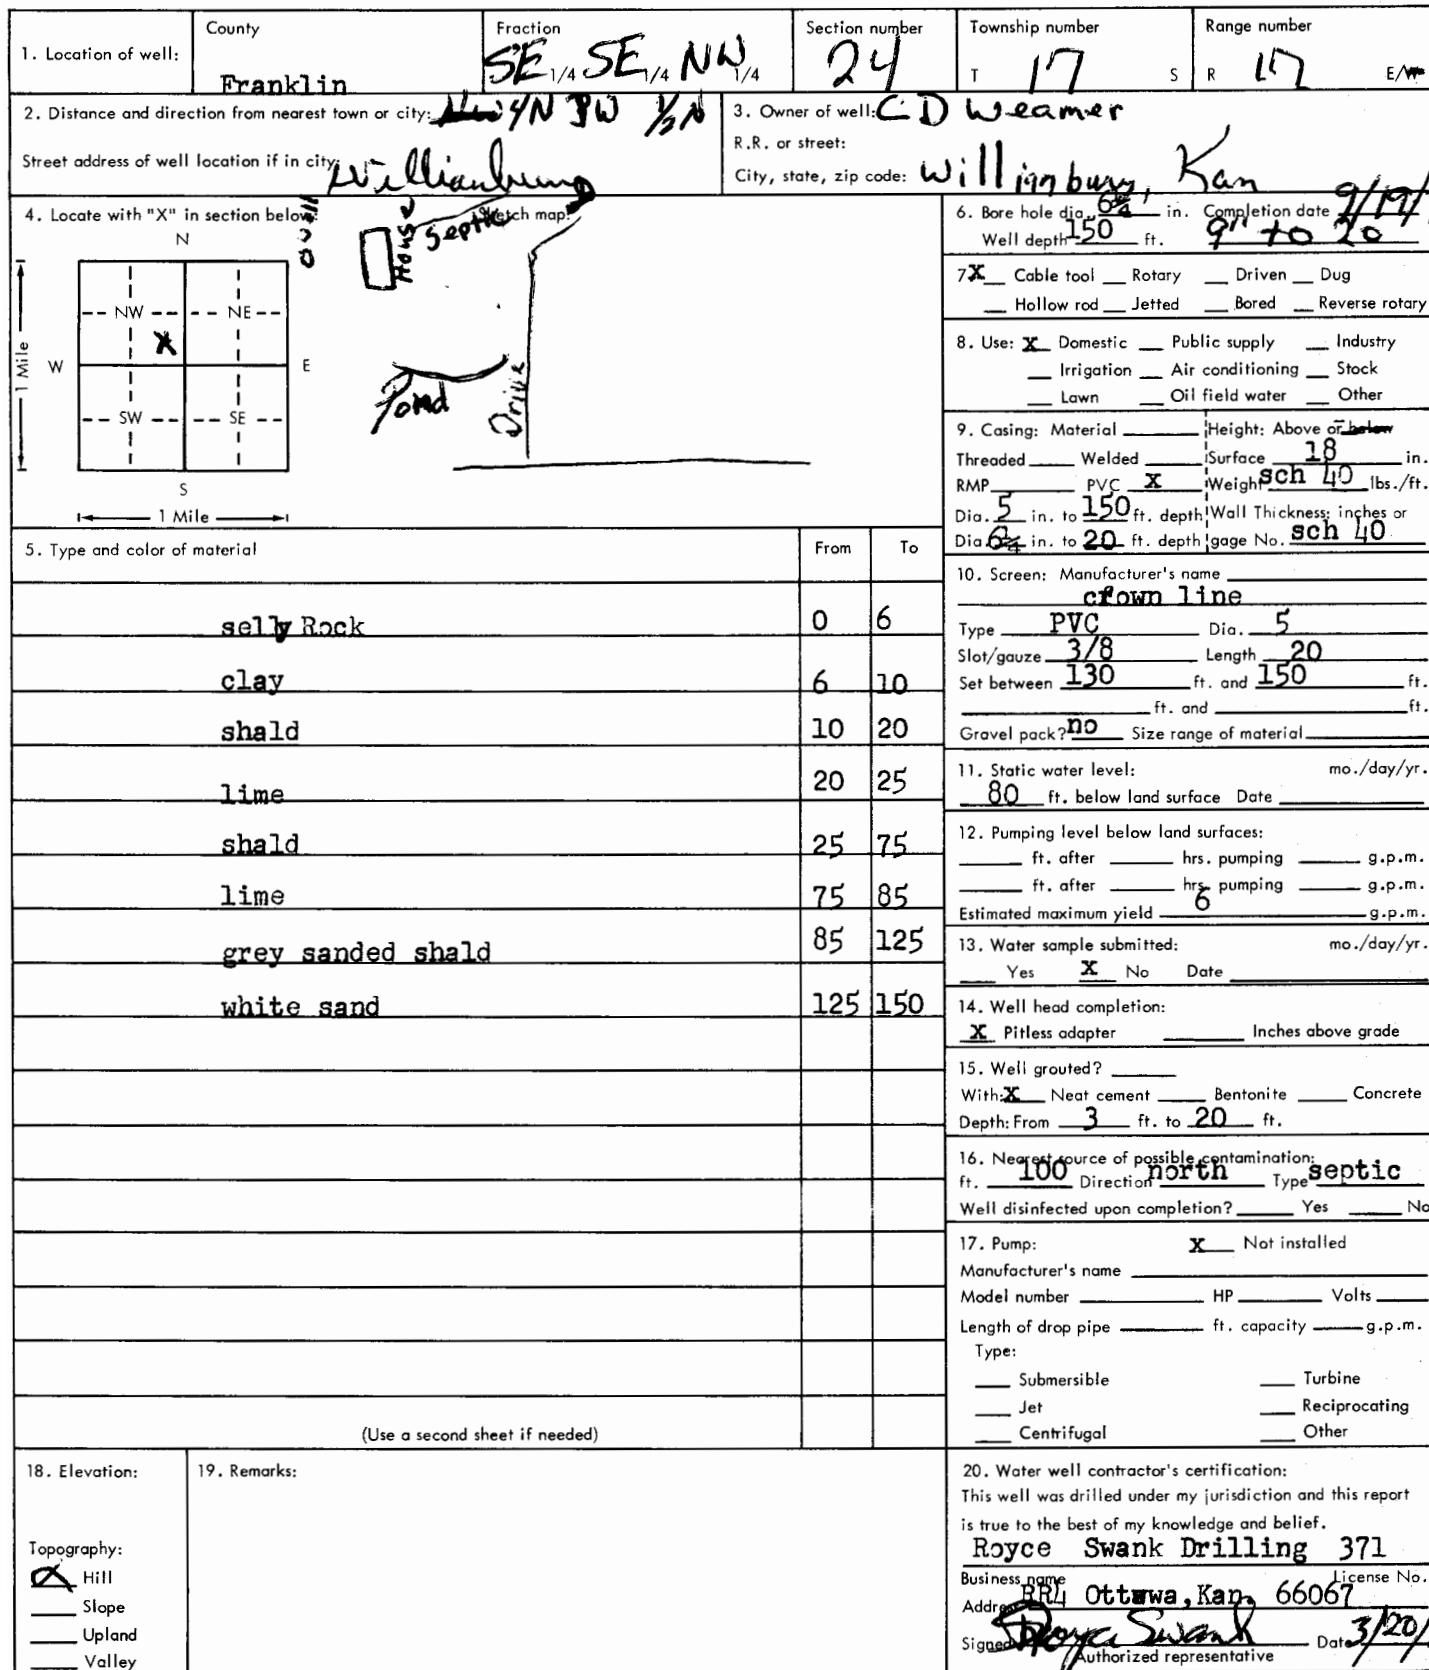 1. Location of well:
County
Franklin
Fraction
SE 1/4 SE 1/4 NW 1/4
Section number
24
Township number
T 17 S
Range number
R 17 E/W
2. Distance and direction from nearest town or city: 4N 3W 1/2 N
Street address of well location if in city:
3. Owner of well: C D Weamer
R.R. or street:
City, state, zip code: Kan
4. Locate with "X" in section below:
N
NW NE
X
W E
SW SE
S
1 Mile
1 Mile
Sketch map:
House
Septic
Pond
Drive
5. Type and color of material From To
selly Rock 0 6
clay 6 10
shald 10 20
lime 20 25
shald 25 75
lime 75 85
grey sanded shald 85 125
white sand 125 150
(Use a second sheet if needed)
6. Bore hole dia. 6¼ in. Completion date 9/19/
Well depth 150 ft. 9" to 20
7 X Cable tool Rotary Driven Dug
Hollow rod Jetted Bored Reverse rotary
8. Use: X Domestic Public supply Industry
Irrigation Air conditioning Stock
Lawn Oil field water Other
9. Casing: Material Height: Above or below
Threaded Welded Surface 18 in.
RMP PVC X Weight sch 40 lbs./ft.
Dia. 5 in. to 150 ft. depth Wall Thickness: inches or
Dia. 6¼ in. to 20 ft. depth gage No. sch 40
10. Screen: Manufacturer's name
crown line
Type PVC Dia. 5
Slot/gauze 3/8 Length 20
Set between 130 ft. and 150 ft.
ft. and ft.
Gravel pack? no Size range of material
11. Static water level: mo./day/yr.
80 ft. below land surface Date
12. Pumping level below land surfaces:
ft. after hrs. pumping g.p.m.
ft. after hrs. pumping g.p.m.
Estimated maximum yield 6 g.p.m.
13. Water sample submitted: mo./day/yr.
Yes X No Date
14. Well head completion:
X Pitless adapter Inches above grade
15. Well grouted?
With: X Neat cement Bentonite Concrete
Depth: From 3 ft. to 20 ft.
16. Nearest source of possible contamination:
ft. 100 Direction north Type septic
Well disinfected upon completion? Yes No
17. Pump: X Not installed
Manufacturer's name
Model number HP Volts
Length of drop pipe ft. capacity g.p.m.
Type:
Submersible Turbine
Jet Reciprocating
Centrifugal Other
18. Elevation:
Topography:
X Hill
Slope
Upland
Valley
19. Remarks:
20. Water well contractor's certification:
This well was drilled under my jurisdiction and this report
is true to the best of my knowledge and belief.
Royce Swank Drilling 371
Business name License No.
Address RR4 Ottawa, Kan. 66067
Signed Royce Swank Date 3/20/
Authorized representative